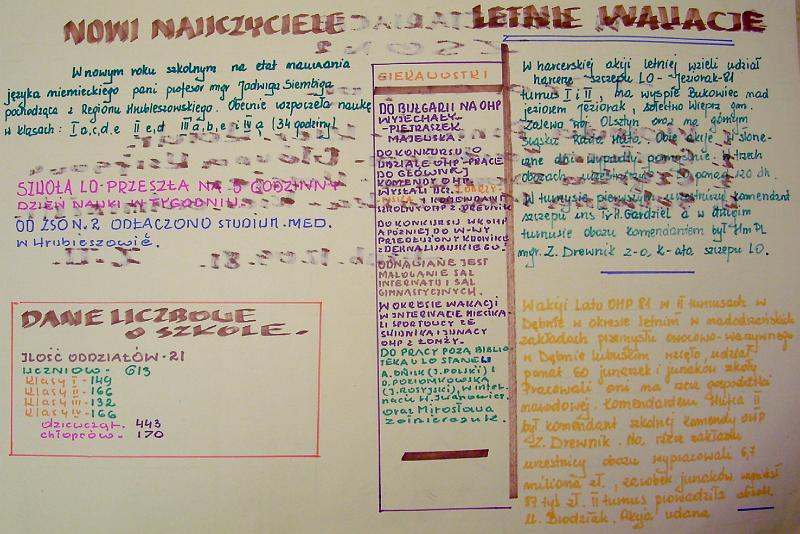 NOWI NAUCZYCIELE
W nowym roku szkolnym na etat nauczania
języka niemieckiego pani profesor mgr Jadwiga Siembiga
pochodząca z Regionu Hrubieszowskiego. Obecnie rozpoczęła naukę
w klasach: I a,c,d,e II e,d III a,b,e IV a (34 godziny)
SZKOŁA LO-PRZESZŁA NA 5 GODZINNY
DZIEŃ NAUKI W TYGODNIU.
OD ZSO N.2 ODŁĄCZONO STUDIUM-MED.
w Hrubieszowie.
DANE LICZBOWE
O SZKOLE.
ILOŚĆ ODDZIAŁÓW-21
UCZNIÓW- 613
klasy I -149
klasy II -166
klasy III -132
klasy IV -166
dziewcząt. 443
chłopców- 170
CIEKAWOSTKI
DO BUŁGARII NA OHP
WYJECHAŁY-
-PIETRASZEK
MAJEWSKA
DO KONKURSU O
UDZIALE OHP-PRACE
DO GŁÓWNEJ
KOMENDY OHP
WYSŁALI UCZ.
I KOMENDANT
SZKOLNY OHP Z. DREWNIK
DO KONKURSU WKOMP
A PÓŹNIEJ DO W-WY
PRZEDŁOŻONY KRONIKĘ
ODNAWIANE JEST
MALOWANIE SAL
INTERNATU I SAL
GIMNASTYCZNYCH.
W OKRESIE WAKACJI
W INTERNACIE MIESZKA-
LI SPORTOWCY ZE
ŚWIDNIKA I JUNACY
OHP Z ŁOMŻY.
DO PRACY POZA BIBLIO-
TEKĄ W LO STANĘLI
A. OŃUK (J.POLSKI) I
D. POZIOMKOWSKA
(J.ROSYJSKI), W INTER-
NACIE W. Iwanowicz.
oraz Mirosława
LETNIE WAKACJE
W harcerskiej akcji letniej wzięli udział
harcerze szczepu LO- Jeziorak-81
turnus I i II, na wyspie Bukowiec nad
jeziorem Jeziorak, sołectwo Wieprz gm.
Zalewo woj. Olsztyn oraz na górnym
Śląsku Kąta Hata. Obie akcje i słone-
czne dni wypadły pomyślnie. W trzech
obozach uczestniczyło ponad 120 dh.
W turnusie pierwszym uczestniczył komendant
szczepu ins Tr.H. Gardziel a w drugim
turnusie obozu komendantem był Hm PL
mgr. Z. Drewnik z-a, k-ata szczepu LO.
W akcji Lato OHP 81 w II turnusach w
Dębnie w okresie letnim w nadodrzańskich
zakładach przemysłu owocowo-warzywnego
w Dębnie Lubuskim wzięło udział
ponad 60 junaczek i junaków szkoły
Pracowali oni na rzecz gospodarki
narodowej. Komendantem Hufca II
był komendant szkolnej komendy OHP
Z. Drewnik. Na rzecz zakładu
uczestnicy obozu wypracowali 6,7
miliona zł, zarobek junaków wyniósł
87 tyś zł. II turnus prowadziła
U. Brodziak. Akcja udana